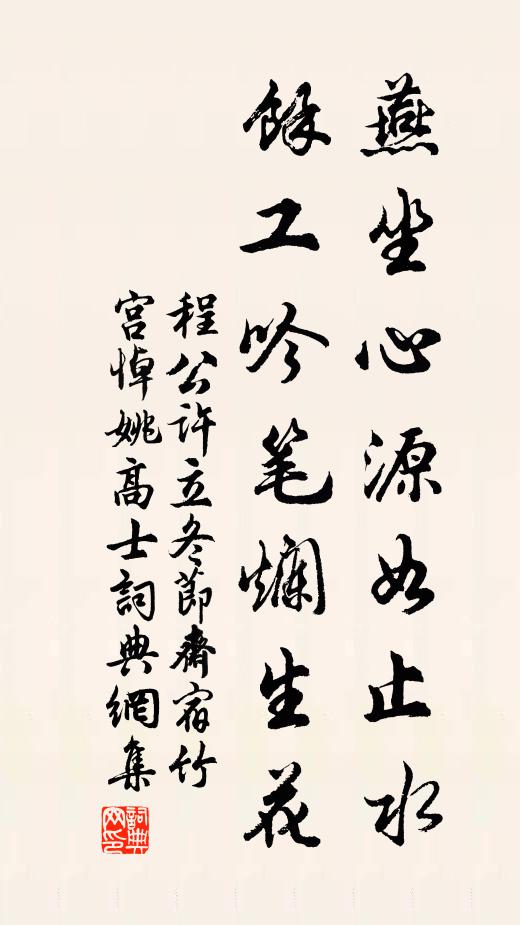 燕坐心源如止水
餘工吟笔爛生花
程公許立冬節齋宿竹
宮悼姚高士詞典網集
詞典网印